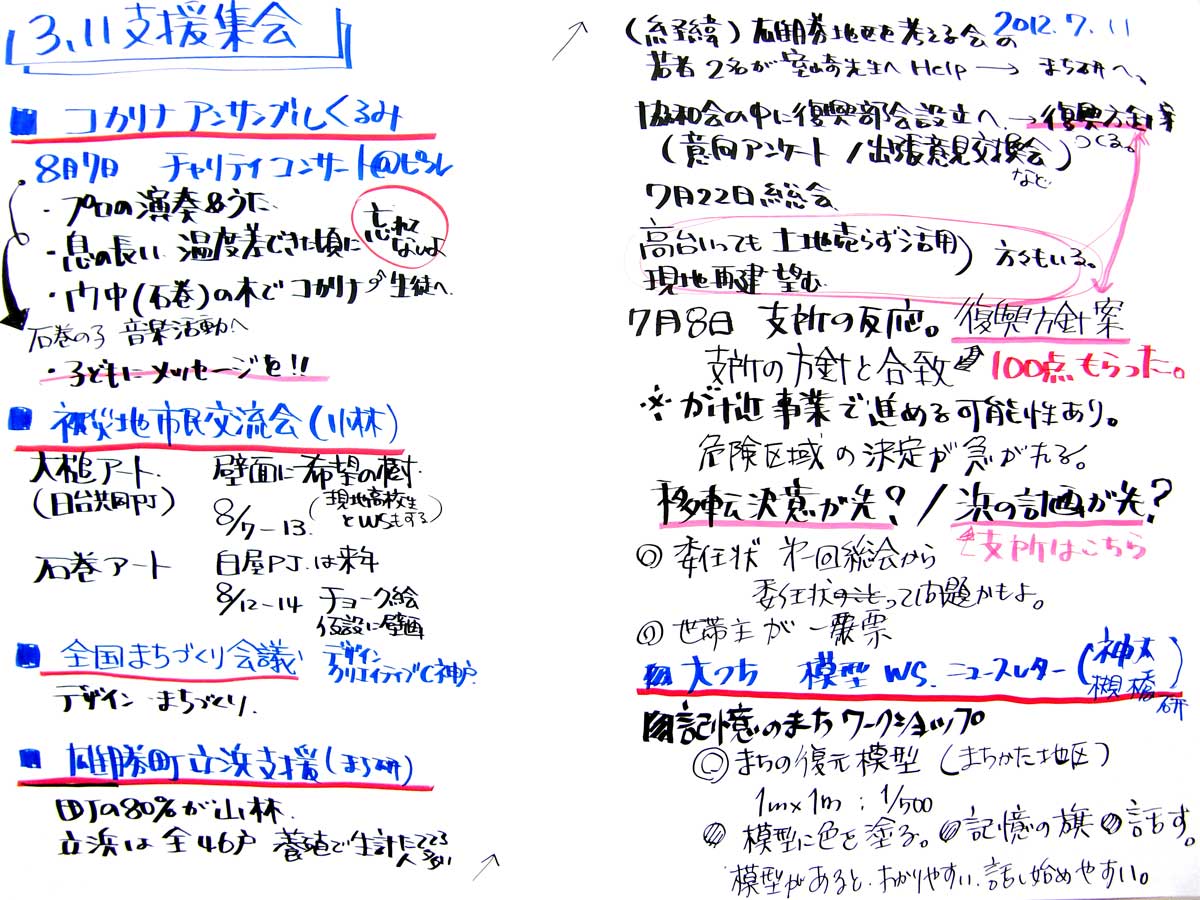 3.11支援集会
■ コカリナアンサンブルくるみ
8月7日 チャリティコンサート@ピフレ
・プロの演奏&うた
・息の長い 温度差できた頃に
忘れてないよ
・門中(石巻)の木でコカリナ→生徒へ
石巻の子 音楽活動へ
・子どもにメッセージを!!
■ 被災地市民交流会(小林)
大槌アート 壁面に希望の樹
(日台共同PJ) (現地高校生とWSもする)
8/7-13
石巻アート 白屋PJ.は来年
8/12-14 チョーク絵
仮設に壁画
■ 全国まちづくり会議 デザインクリエイティブC神戸
デザインまちづくり
■ 雄勝町立浜支援(まち研)
町の80%が山林
立浜は全46戸 養殖で生計たてる人多い
2012.7.11
(経緯)雄勝地区を考える会の
若者2名が室崎先生へHelp → まち研へ
協和会の中に復興部会設立へ→復興方針案つくる。
(意向アンケート/出張意見交換会)など
7月22日総会
高台いっても土地売らず活用
現地再建望む 方々もいる。
7月8日 支所の反応。 復興方針案
支所の方針と合致 100点もらった。
※がけ近事業で進める可能性あり。
危険区域の決定が急がれる。
移転決意が先?/浜の計画が先?
支所はこちら
◎委任状 第一回総会から
委任状って問題かもよ。
◎世帯主が一票
■ 大つち 模型WS.ニュースレター(神大 槻橋研)
■記憶のまちワークショップ
◎まちの復元模型(まちかた地区)
1m×1m : 1/500
◎模型に色を塗る。◎記憶の旗◎話す。
模型があると、わかりやすい、話し始めやすい。